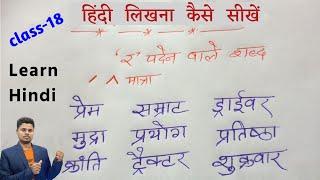 class-18
हिंदी लिखना कैसे सीखें
'र' पदेन वाले शब्द
Learn
Hindi
मात्रा
प्रेम सम्राट ड्राईवर
मुद्रा प्रयोग प्रतिष्ठा
क्रांति ट्रैक्टर शुक्रवार